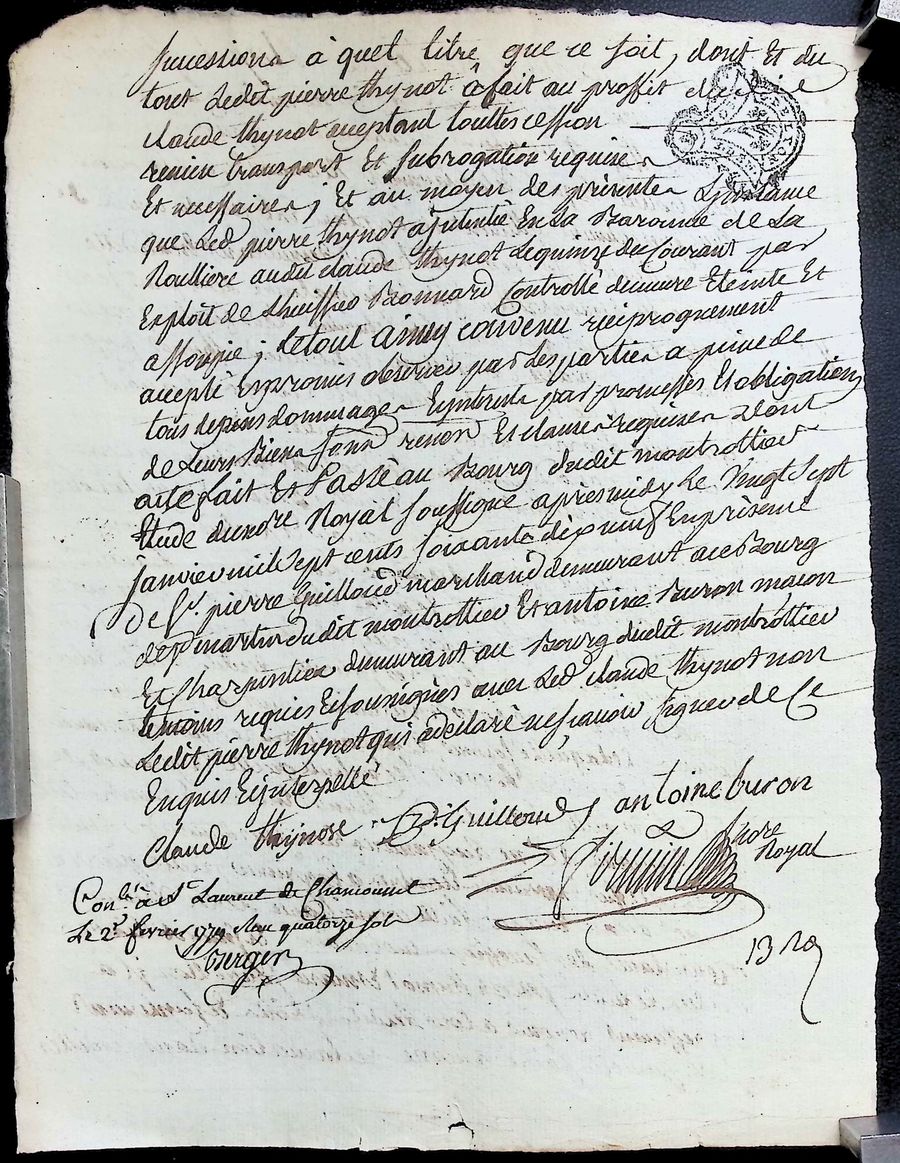 successions à quel titre que ce soit, dont Et du
tout Ledit pierre thynot a fait au proffit dudit
claude thynot acceptant touttes cession
remise transport Et subrogation requises
Et necessaires ; Et au moyen des présentes L'instance
que Led pierre thynot a intentée En La Baronie de La
Roulliere audit claude thynot Le quinze du Courant par
Exploit de L'huissier Bonnard Controllé demeure Eteinte Et
assoupie ; Le tout ainsy convenu reciproquement
accepté Et promis observer par Les parties a peine de
tous depens dommages Et interets par promesses Et obligations
de Leurs Biens sous renon Et clauses requises Dont
acte fait Et Passé au Bourg dudit montrottier
Etude du nore Royal soussigné apres midy Le Vingt Sept
Janvier mil Sept cents soixante dix neuf En présence
De Sr. pierre Guilloud marchand demeurant au Bourg
de st martin dudit montrottier Et antoine Buron maçon
Et Charpentier demeurant au Bourg dudit montrottier
temoins requis Et sousignés avec Led claude thynot non
Ledit pierre thynot qui a declaré ne sçavoir signer de Ce
Enquis Et interpellé
Claude thynot P. Guilloud antoine buron
nore
Royal
Conlé. à St Laurent de Chamousset
Le 2e fevrier 1779 Reçu quatorze sols
berger
13